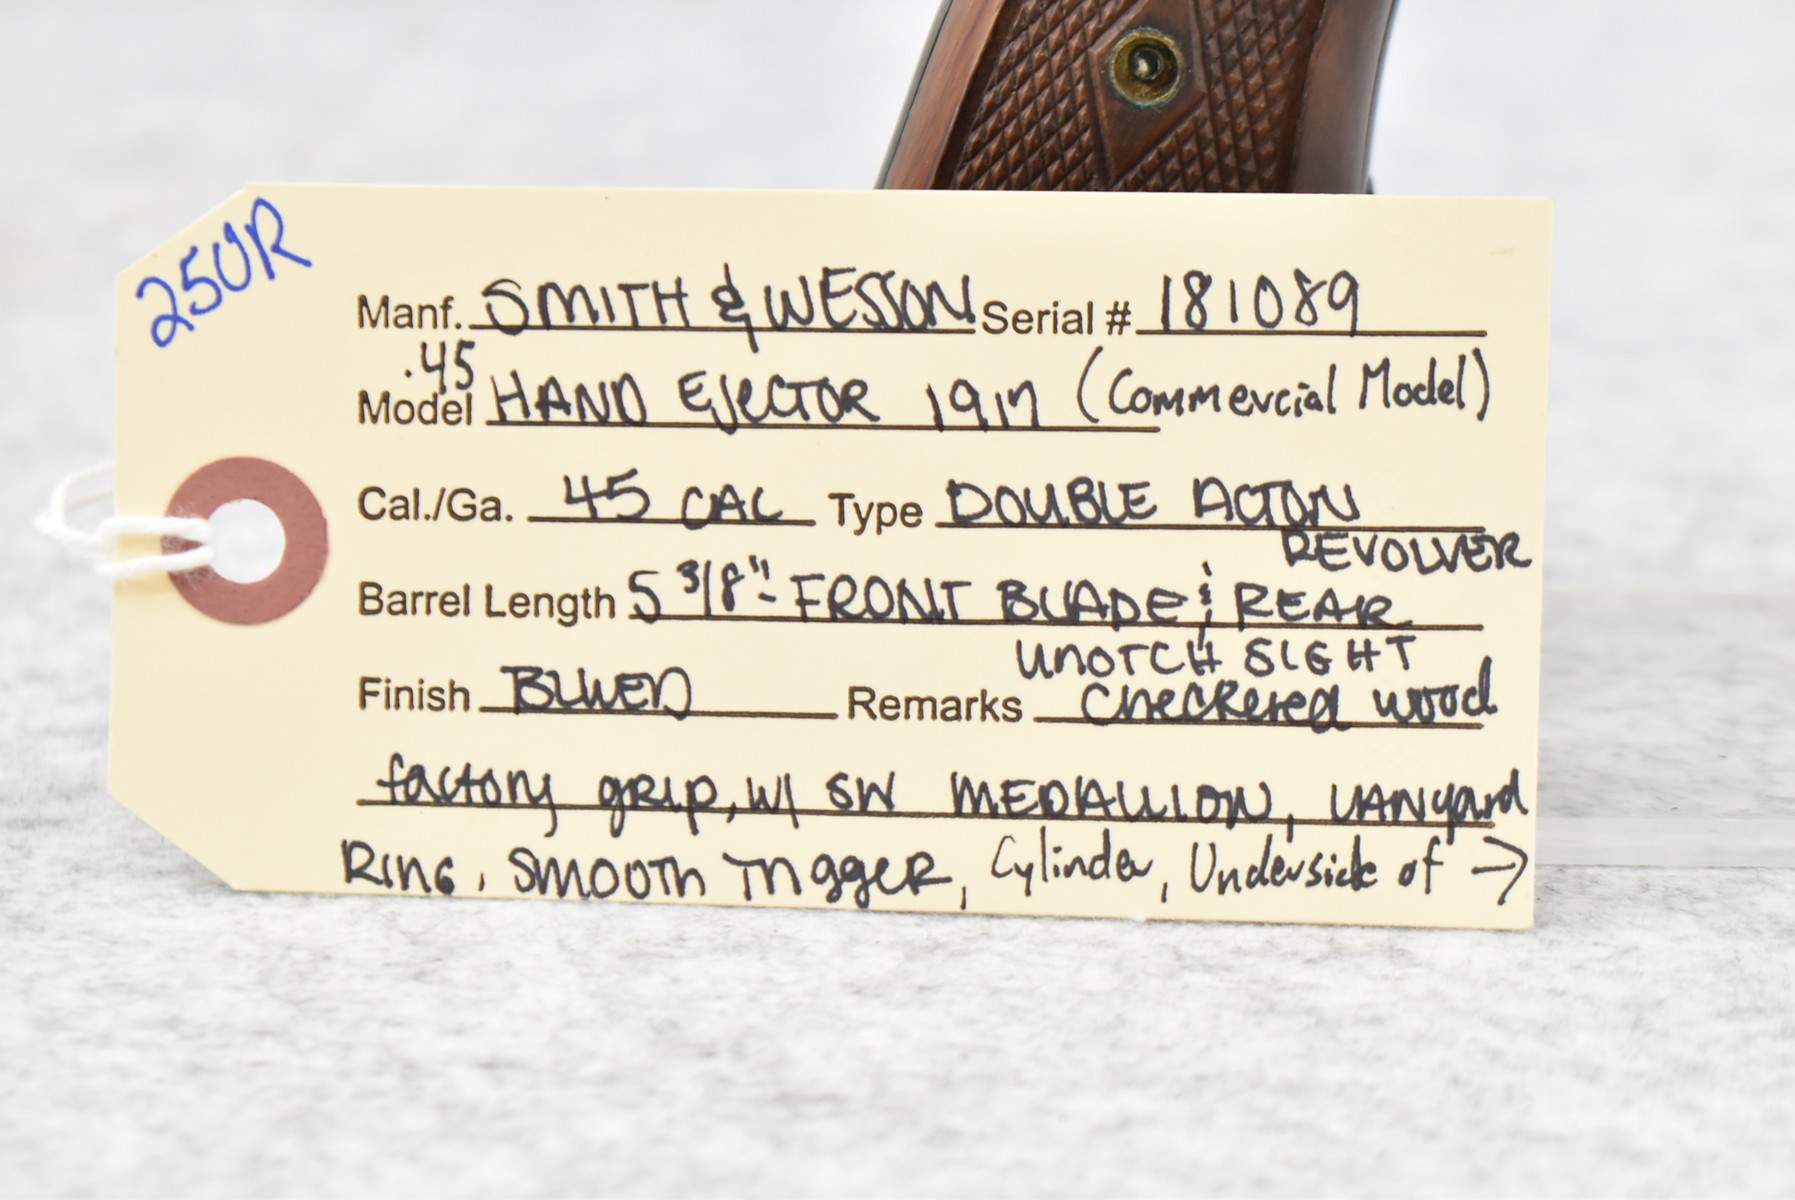 250R
Manf. SMITH & WESSON Serial # 181089
.45
Model HAND EJECTOR 1917 (Commercial Model)
Cal./Ga. 45 CAL Type DOUBLE ACTION
REVOLVER
Barrel Length 5 3/8"- FRONT BLADE & REAR
UNOTCH SIGHT
Finish BLUED Remarks Checkered wood
factory grip, w/ SW MEDALLION, LANyard
RING, SMOOTH TRIGGER, Cylinder, Underside of →